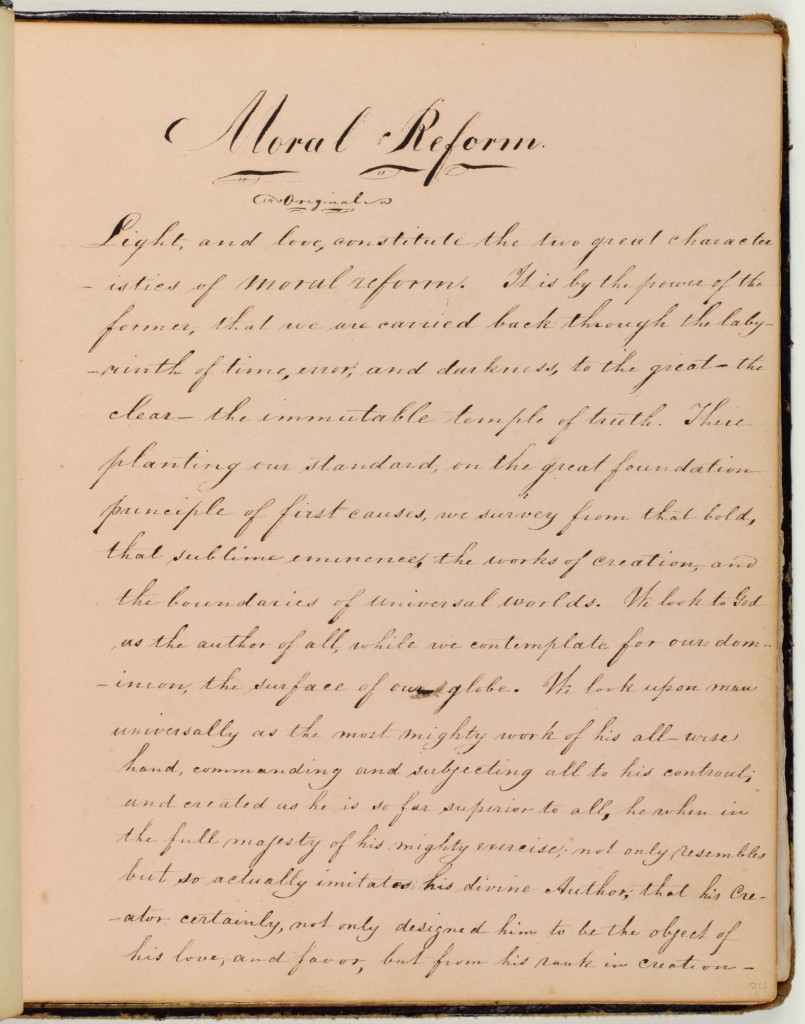 Moral Reform.
Original
Light, and love, constitute the two great character
- istics of moral reform. It is by the power of the
former, that we are carried back through the laby-
-rinth of time, error, and darkness, to the great - the
clear - the immutable temple of truth. There
planting our standard, on the great foundation
principle of first causes, we survey from that bold,
that sublime eminence, the works of creation, and
the boundaries of universal worlds. We look to God
as the author of all, while we contemplate for our dom-
- inion, the surface of our globe. We look upon man
universally as the most mighty work of his all-wise
hand, commanding and subjecting all to his controul;
and created as he is so far superior to all, he when in
the full majesty of his mighty exercise, not only resembles
but so actually imitates his divine Author, that his Cre-
-ator certainly, not only designed him to be the object of
his love, and favor, but from his rank in creation -
34